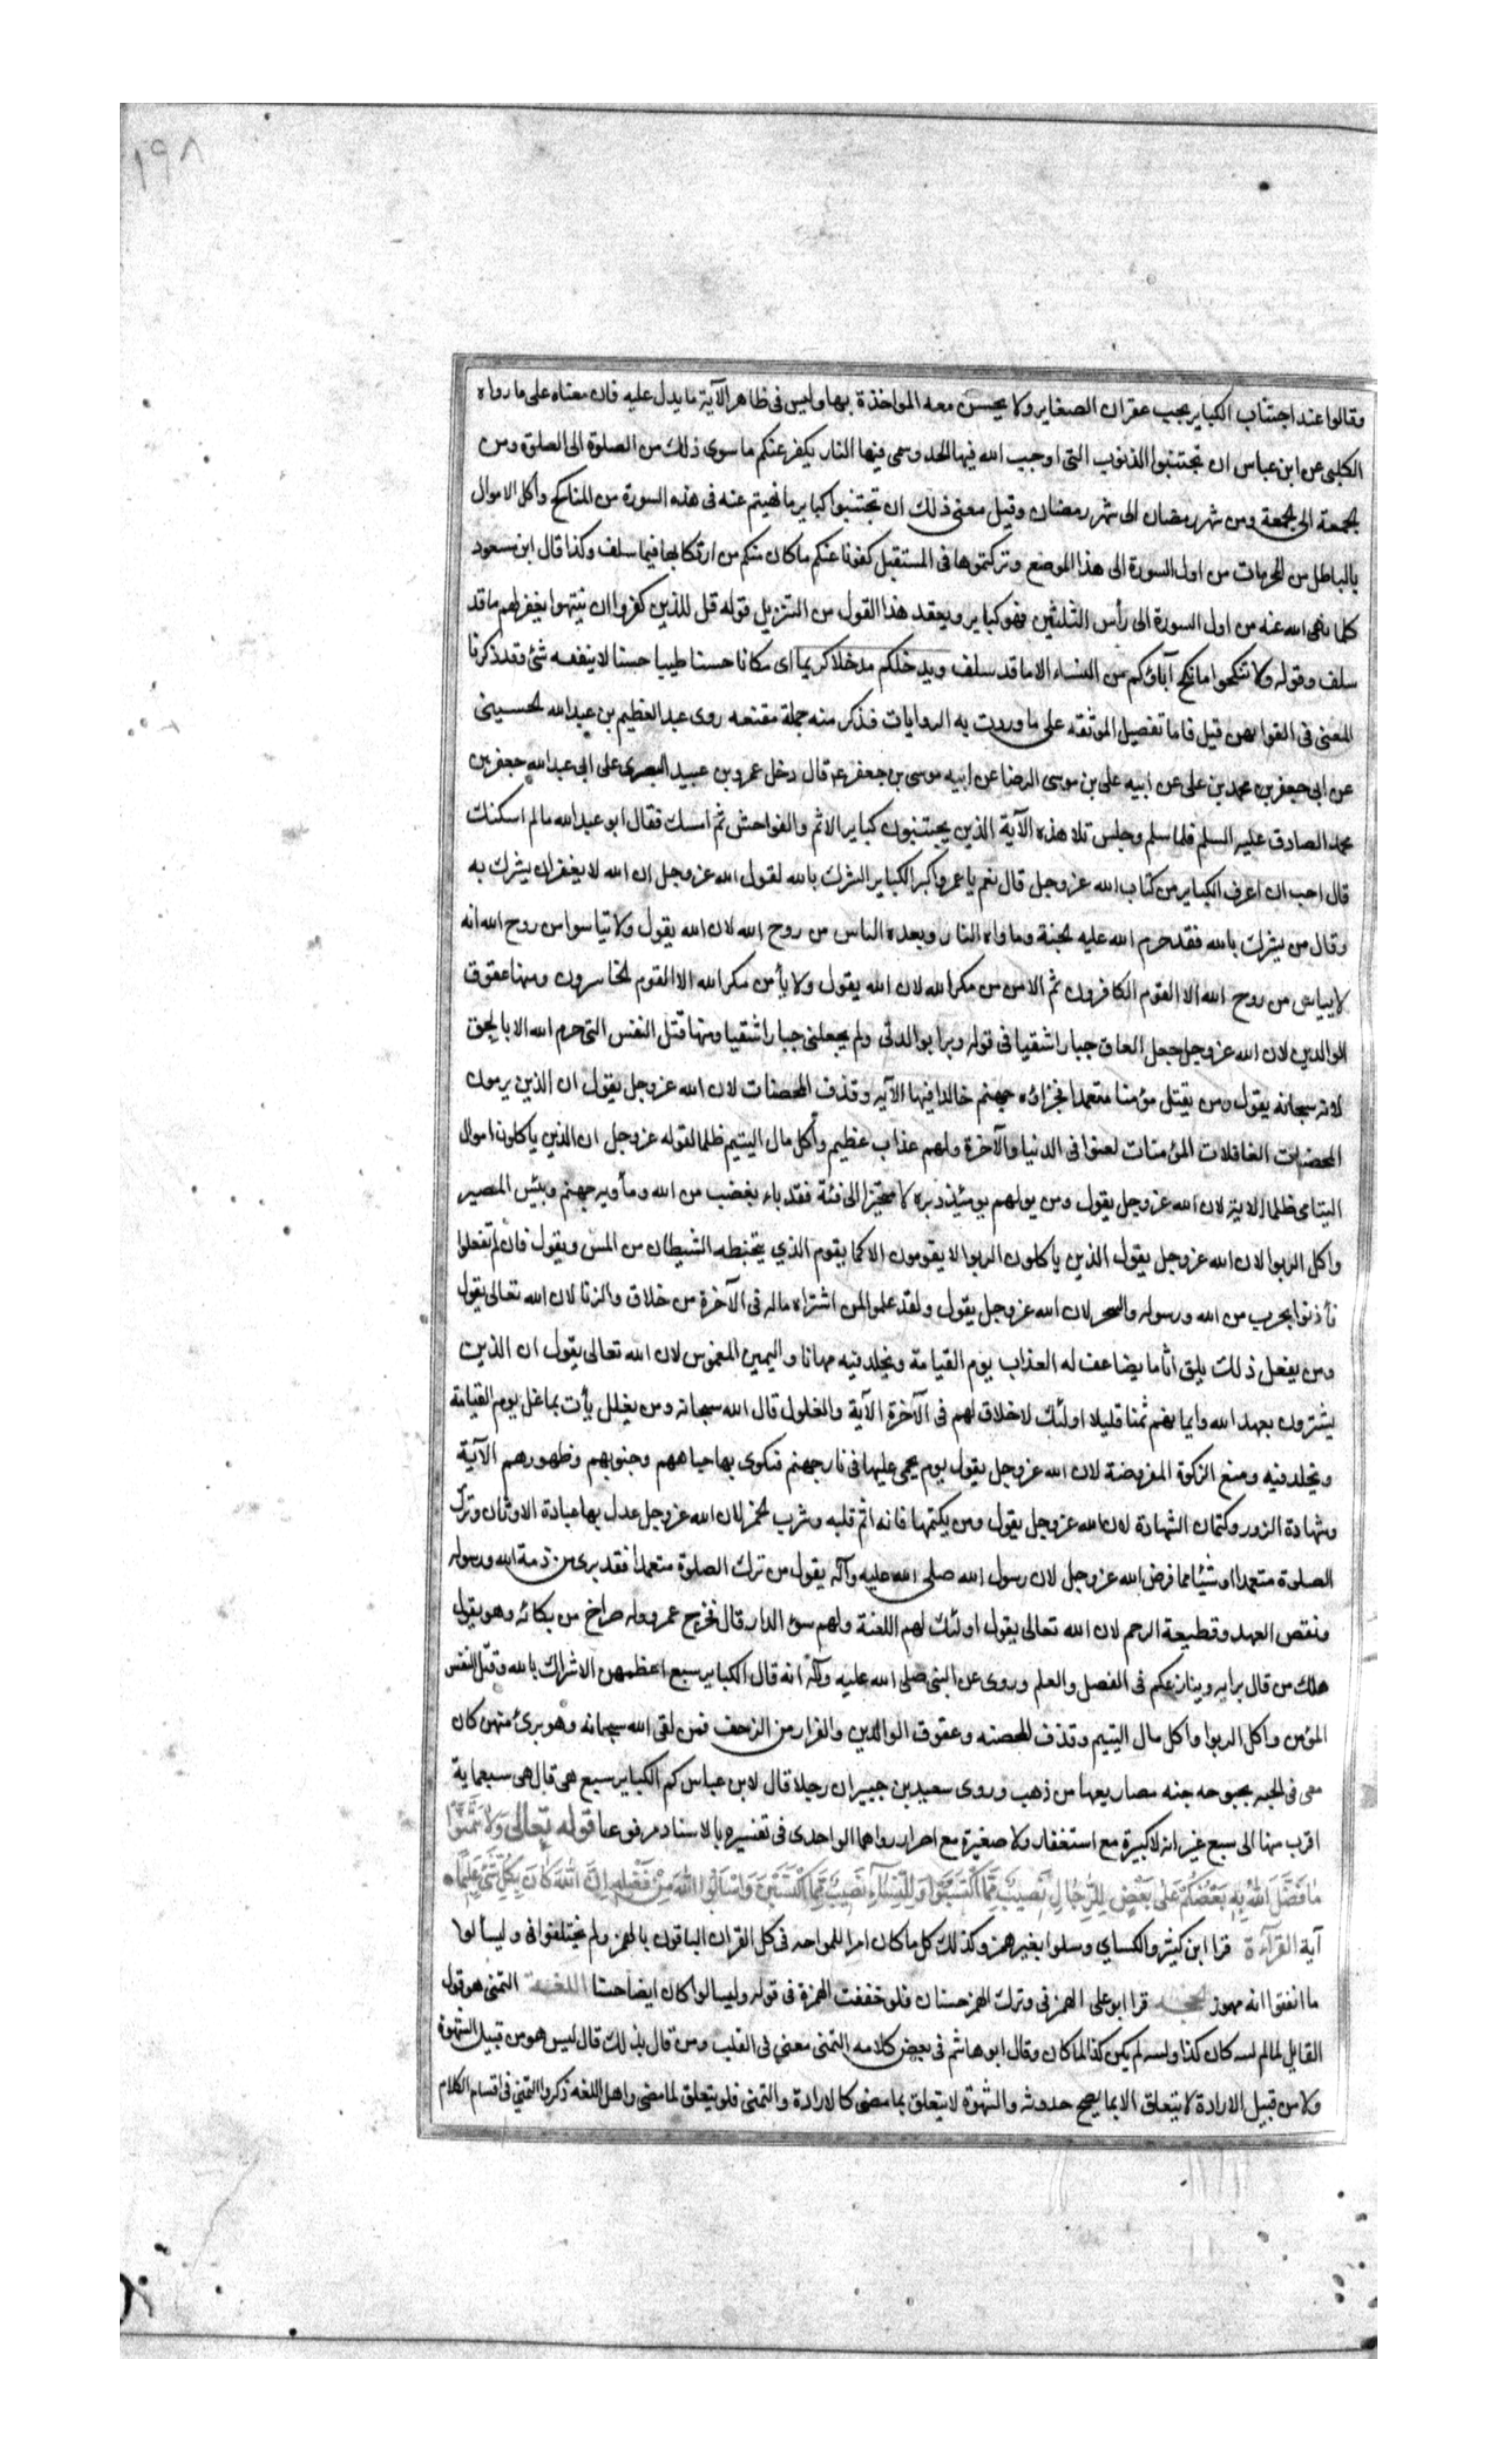 ١٩٨
وقالوا عند اجتناب الكباير يجب غفران الصغاير ولا يحسن معه المواخذة بها وليس فى ظاهر الآية ما يدل عليه فان معناه على ما رواه
الكلبى عن ابن عباس ان تجتنبوا الذنوب التى اوجب الله فيها الحد وسمى فيها النار يكفر عنكم ما سوى ذلك من الصلوة الى الصلوة ومن
الجمعة الى الجمعة ومن شهر رمضان الى شهر رمضان وقيل معنى ذلك ان تجتنبوا كباير ما نهيتم عنه فى هذه السورة من المناكح وأكل الاموال
بالباطل من المحرمات من اول السورة الى هذا الموضع وتركتموها فى المستقبل كفرنا عنكم ما كان منكم من ارتكابها فيما سلف وكذا قال ابن مسعود
كلما نهى الله عنه من اول السورة الى رأس الثلثين فهو كباير ويعقد هذا القول من التنزيل قوله قل للذين كفروا ان ينتهوا يغفر لهم ما قد
سلف وقوله ولا تنكحوا ما نكح آباؤكم من النساء الا ما قد سلف ويدخلكم مدخلا كريما اى مكانا حسنا طيبا حسنا لا ينفعه شئ وقد ذكرنا
المعنى فى القوا بهن قبل فاما تفصيل الموثقه على ما وردت به الروايات فذكر منه جملة مقنعه روى عبد العظيم بن عبد الله الحسينى
عن ابى جعفر بن محمد بن على عن ابيه على بن موسى الرضا عن ابيه موسى بن جعفر ع قال دخل عمرو بن عبيد البصرى على ابى عبد الله جعفر بن
محمد الصادق عليه السلم فلما سلم وجلس تلا هذه الآية الذين يجتنبون كباير الاثم والفواحش ثم امسك فقال ابو عبد الله ما لم اسكنك
قال احب ان اعرف الكباير من كتاب الله عز وجل قال نعم يا عمرو اكبر الكباير الشرك بالله لقول الله عز وجل ان الله لا يغفر ان يشرك به
وقال من يشرك بالله فقد حرم الله عليه الجنة وماواه النار وبعده الناس من روح الله لان الله يقول ولا تياسوا من روح الله انه
لا يياس من روح الله الا القوم الكافرون ثم الامن من مكر الله لان الله يقول ولا يأمن مكر الله الا القوم الخاسرون ومنها عقوق
الوالدين لان الله عز وجل جعل العاق جبارا شقيا فى قوله وبرا بوالدتى ولم يجعلنى جبارا شقيا ومنها قتل النفس التى حرم الله الا بالحق
لانه سبحانه يقول ومن يقتل مؤمنا متعمدا فجزاؤه جهنم خالدا فيها الآيه وقذف المحصنات لان الله عز وجل يقول ان الذين يرمون
المحصنات الغافلات المؤمنات لعنوا فى الدنيا والآخرة ولهم عذاب عظيم وأكل مال اليتيم ظلما لقوله عز وجل ان الذين ياكلون اموال
اليتامى ظلما الاية لان الله عز وجل يقول ومن يولهم يومئذ دبره لا متحيزا الى فئة فقد باء بغضب من الله ومأويه جهنم وبئس المصير
واكل الربوا لان الله عز وجل يقول الذين ياكلون الربوا لا يقومون الا كما يقوم الذي يتخبطه الشيطان من المس ويقول فان لم تفعلوا
فأذنوا بحرب من الله ورسوله والسحر لان الله عز وجل يقول ولقد علموا لمن اشتراه ماله فى الآخرة من خلاق والزنا لان الله تعالى يقول
ومن يفعل ذلك يلق اثاما يضاعف له العذاب يوم القيامة ويخلد فيه مهانا واليمين الغموس لان الله تعالى يقول ان الذين
يشترون بعهد الله وايمانهم ثمنا قليلا اولئك لا خلاق لهم فى الآخرة الآية والغلول قال الله سبحانه ومن يغلل يأت بما غل يوم القيامة
ويخلد فيه ومنع الزكوة المفروضة لان الله عز وجل يقول يوم يحمى عليها فى نار جهنم فتكوى بها جباههم وجنوبهم وظهورهم الآية
وشهادة الزور وكتمان الشهادة لان الله عز وجل يقول ومن يكتمها فانه اثم قلبه وشرب الخمر لان الله عز وجل عدل بها عبادة الاوثان وترك
الصلوة متعمدا او شيئا مما فرض الله عز وجل لان رسول الله صلى الله عليه وآله يقول من ترك الصلوة متعمدا فقد برى من ذمة الله ورسوله
ونقص العهد وقطيعة الرحم لان الله تعالى يقول اولئك لهم اللعنة ولهم سوء الدار قال فخرج عمرو وله صراخ من بكائه وهو يقول
هلك من قال برايه وينازعكم فى الفصل والعلم وروى عن النبى صلى الله عليه وآله انه قال الكباير سبع اعظمهن الاشراك بالله وقتل النفس
المؤمن واكل الربوا واكل مال اليتيم وقذف المحصنه وعقوق الوالدين والفرار من الزحف فمن لقى الله سبحانه وهو برئ منهن كان
معى فى بحبوحه جنه مصاريعها من ذهب وروى سعيد بن جبير ان رجلا قال لابن عباس كم الكباير سبع هى قال هى سبعماية
اقرب منها الى سبع غير انه لا كبيرة مع استغفار ولا صغيرة مع اصرار رواهما الواحدى فى تفسيره بالاسناد مرفوعا قوله تعالى وَلَا تَتَمَنَّوْا
مَا فَضَّلَ اللهُ بِهِ بَعْضَكُمْ عَلَى بَعْضٍ لِلرِّجَالِ نَصِيبٌ مِمَّا اكْتَسَبُوا وَلِلنِّسَاءِ نَصِيبٌ مِمَّا اكْتَسَبْنَ وَاسْأَلُوا اللهَ مِنْ فَضْلِهِ إِنَّ اللهَ كَانَ بِكُلِّ شَىْءٍ عَلِيمًا
آية القرآءة قرا ابن كثير والكساي وسلوا بغير همز وكذلك كل ما كان امرا للمواجه فى كل القران الباقون بالهمز ولم يختلفوا فى وليسألوا
ما انفقوا انه مهموز الحجه قرا ابو على الهمز فى وترك الهمز حسنان فلو خففت الهمزة فى قوله وليسالوا كان ايضا حسنا اللغة التمنى هو قول
القايل لما لم كان كذا وليته لم يكن كذا لما كان وقال ابو هاشم فى بعض كلامه التمنى معنى فى القلب ومن قال بذلك قال ليس هو من قبيل الشهوة
ولا من قبيل الارادة لا يتعلق الا بما يصح حدوثه والشهوة لا يتعلق بما مضى كالارادة والتمنى فلو يتعلق لما مضى واهل اللغه ذكروا التمنى فى اقسام الكلام